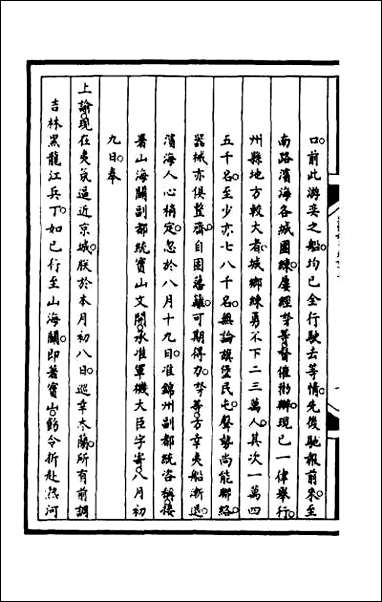 口前此游奕之船均已全行駛去等情先後馳報前來至
南路濱海各城團練屢經勞等督催彬辦現已一律舉行
州縣地方較大者城鄉練勇不下二三萬人其次一萬四
五千名至少亦七八千名無論旗堡民屯聲勢尚能聯絡
器械亦俱整齊自固藩籬可期得力勞等方幸夷船漸退
濱海人心稍定忽於八月十九日准錦州副都統咨稱接
署山海關副都統寶山文開承准軍機大臣字寄八月初
九日奉
上諭現在夷氛逼近京城朕於本月初八日巡幸木蘭所有前調
吉林黑龍江兵丁如已行至山海關即著寶山飭令折赴熱河